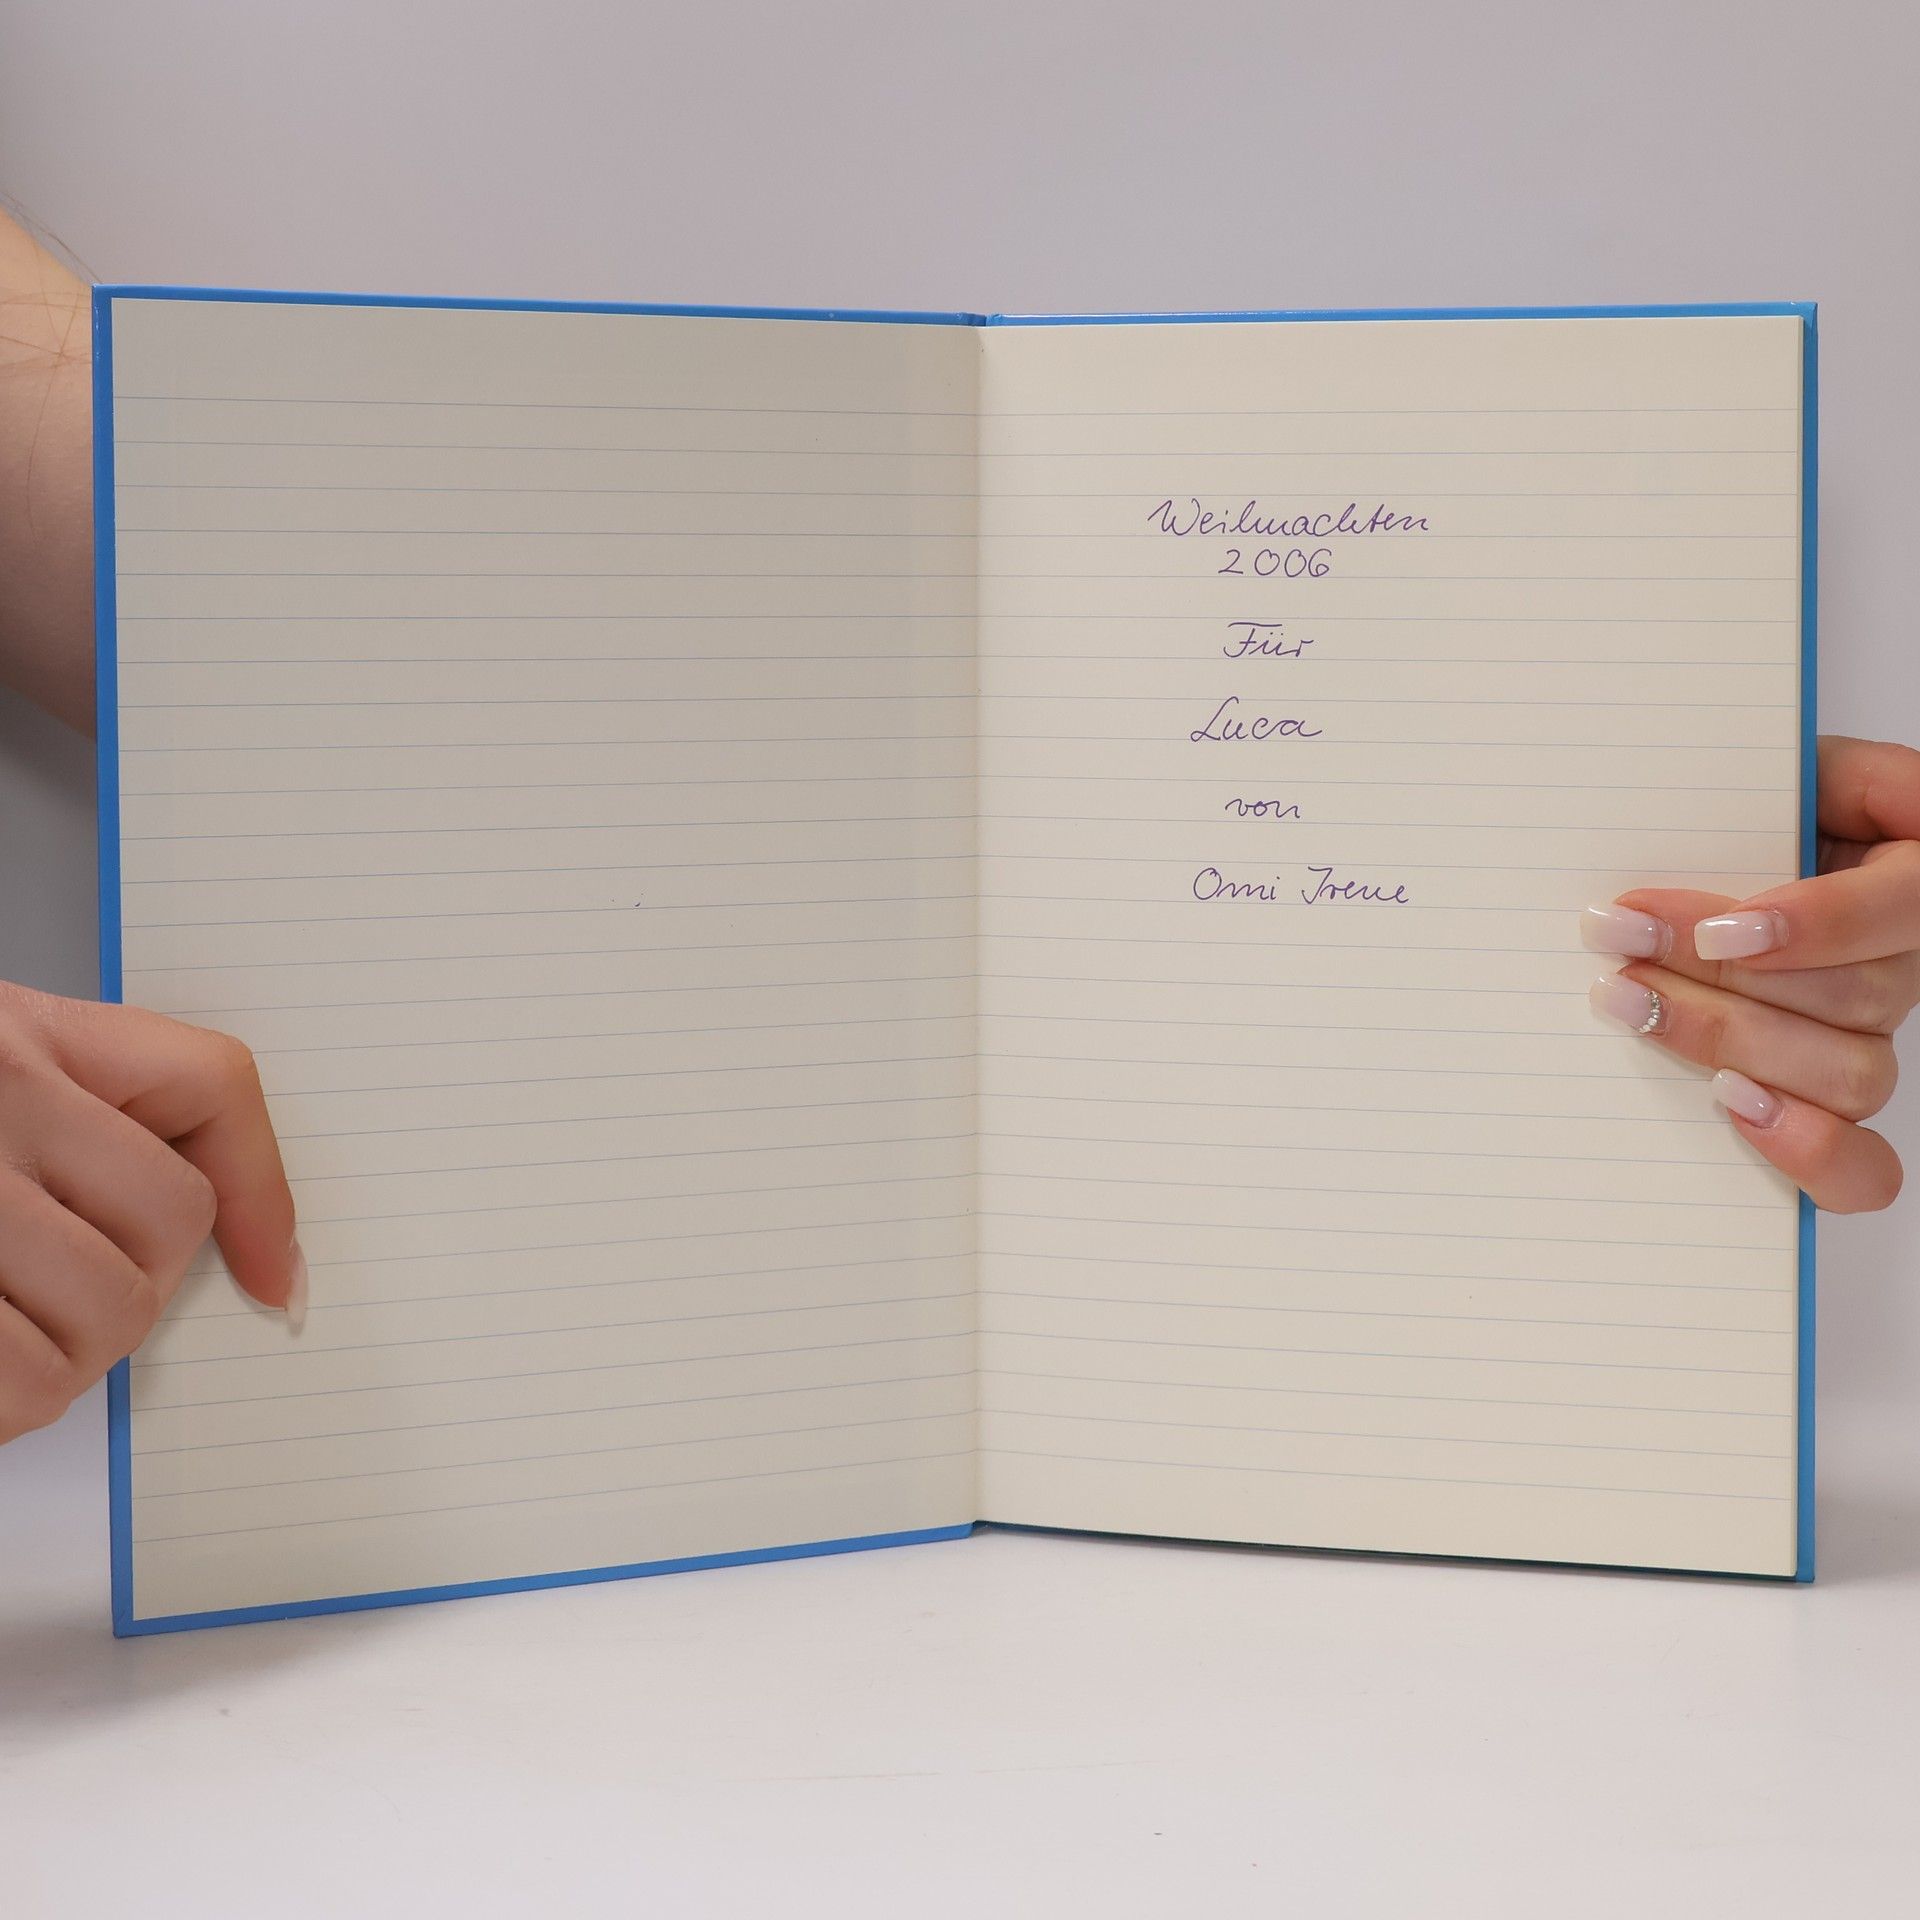 Weihnachten
2006
Für
Luca
von
Omi Irene